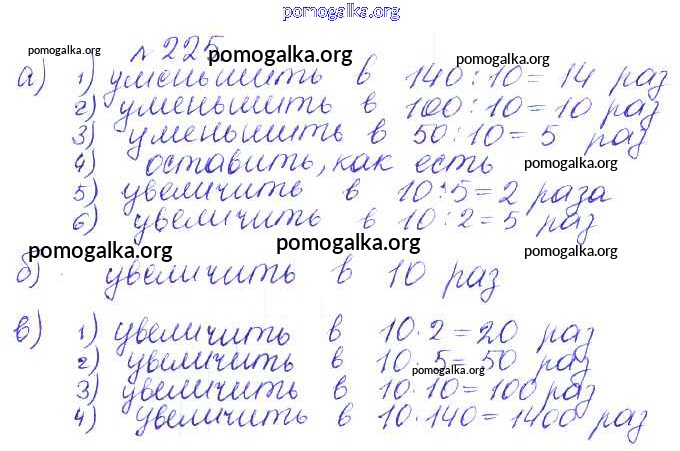 pomogalka.org
№ 225
pomogalka.org pomogalka.org pomogalka.org
а) 1) уменьшить в 140 : 10 = 14 раз
2) уменьшить в 100 : 10 = 10 раз
3) уменьшить в 50 : 10 = 5 раз
4) оставить, как есть
pomogalka.org
5) увеличить в 10 : 5 = 2 раза
6) увеличить в 10 : 2 = 5 раз
pomogalka.org pomogalka.org pomogalka.org
б) увеличить в 10 раз
в) 1) увеличить в 10 · 2 = 20 раз
2) увеличить в 10 · 5 = 50 раз
pomogalka.org
3) увеличить в 10 · 10 = 100 раз
4) увеличить в 10 · 140 = 1400 раз